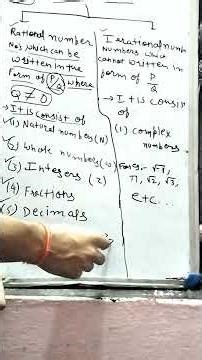 Rational number
No's which can be
written in the
form of P/Q where
Q ≠ 0
→ It is consist of
(1) Natural numbers (N)
(2) Whole numbers (w)
(3) Integers (Z)
(4) Fractions
(5) Decimals
Irrational num
Numbers which
cannot written in
form of P/Q
→ It is consist
of
(1) complex
numbers
π, √2, √3,
etc...